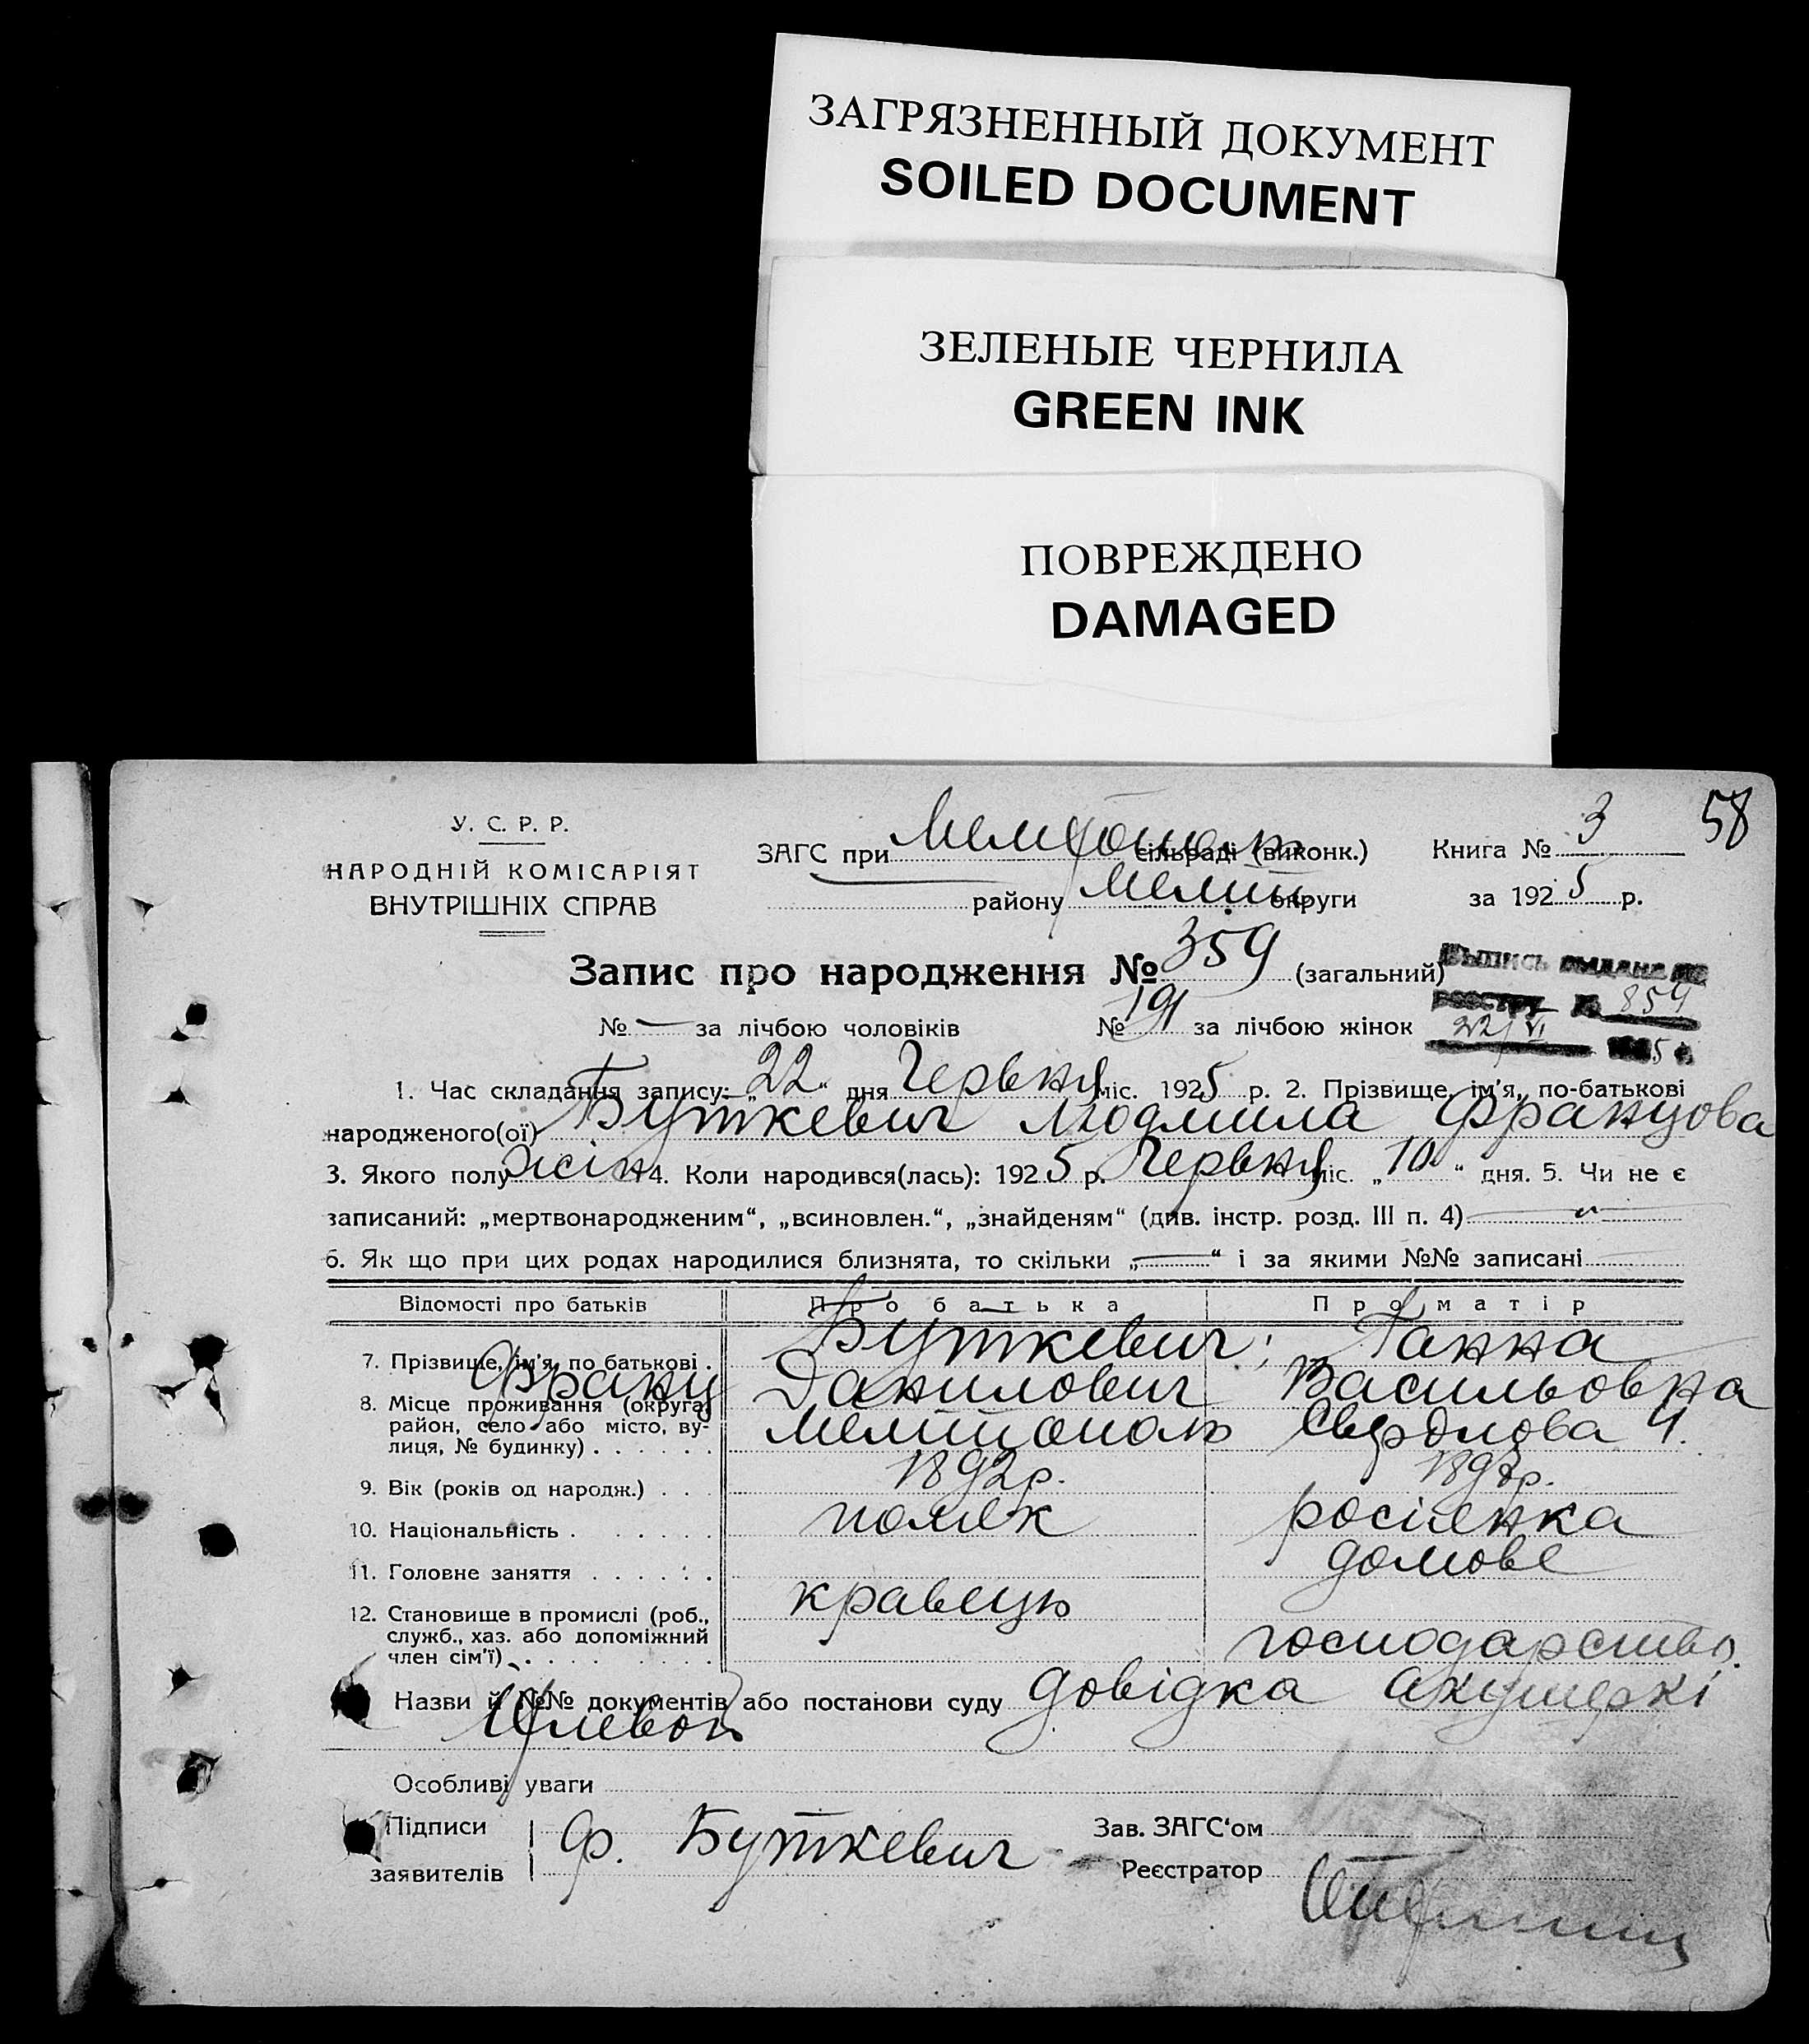 ЗАГРЯЗНЕННЫЙ ДОКУМЕНТ
SOILED DOCUMENT
ЗЕЛЕНЫЕ ЧЕРНИЛА
GREEN INK
ПОВРЕЖДЕНО
DAMAGED
58
У. С. Р. Р.
НАРОДНІЙ КОМІСАРІЯТ
ВНУТРІШНІХ СПРАВ
ЗАГС при Мелітополь сільраді (виконк.) Книга № 3
району Меліт. округи за 1925 р.
Запис про народження № 359 (загальний)
Выпись выдана по
реестру № 859
22/VI
5 г.
№ — за лічбою чоловіків № 191 за лічбою жінок
1. Час складання запису: „22“ дня Червня міс. 1925 р. 2. Прізвище, ім'я, по-батькові
народженого(ої) Буткевич Людмила Францова
3. Якого полу жін 4. Коли народився(лась): 1925 р. Червня міс. „10“ дня. 5. Чи не є
записаний: „мертвонародженим“, „всиновлен.“, „знайденям“ (див. інстр. розд. III п. 4)
6. Як що при цих родах народилися близнята, то скільки „—“ і за якими №№ записані
Відомості про батьків Про батька Про матір
7. Прізвище, ім'я, по батькові . Буткевич; Ганна
Франц Данилович Васильовна
8. Місце проживання (округа,
район, село або місто, вулиця, № будинку) . . . . . . Мелітополь Свердлова 4.
9. Вік (років од народж.) . . . 1892р. 1897р.
10. Національність . . . . . . поляк росіенка
11. Головне заняття . . . . . . кравець домове
12. Становище в промислі (роб.,
служб., хаз. або допоміжний
член сім'ї) . . . . . . . . господарство.
Назви й №№ документів або постанови суду довідка акушеркі
Особливі уваги
Підписи
заявителів Ф. Буткевич
Зав. ЗАГС'ом
Реєстратор